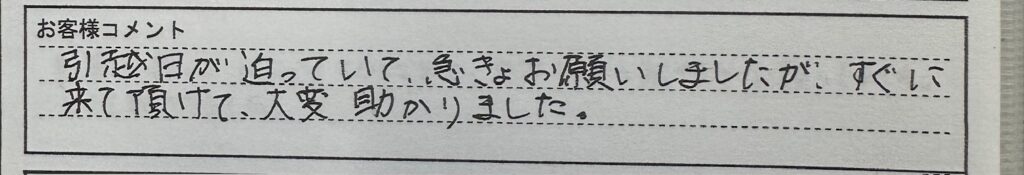 お客様コメント
引越日が迫っていて、急きょお願いしましたが、すぐに
来て頂けて、大変助かりました。